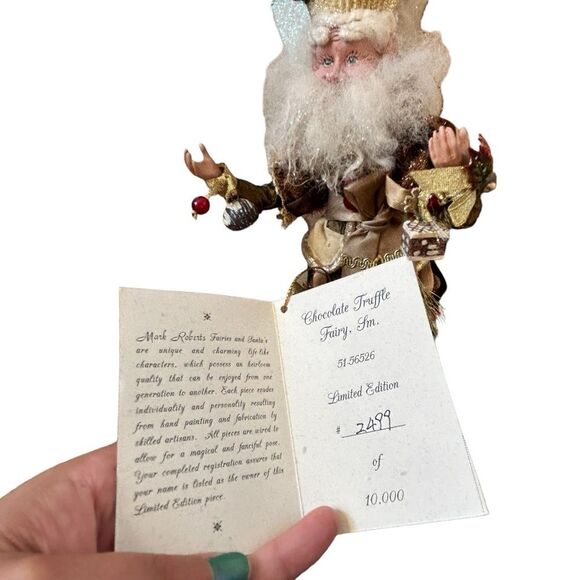 Mark Roberts Fairies and Santa's
are unique and charming life-like
characters, which possess an heirloom
quality that can be enjoyed from one
generation to another. Each piece exudes
individuality and personality resulting
from hand painting and fabrication by
skilled artisans. All pieces are wired to
allow for a magical and fanciful pose.
Your completed registration assures that
your name is listed as the owner of this
Limited Edition piece.
Chocolate Truffle
Fairy, Sm.
51-56526
Limited Edition
# 2499
of
10,000